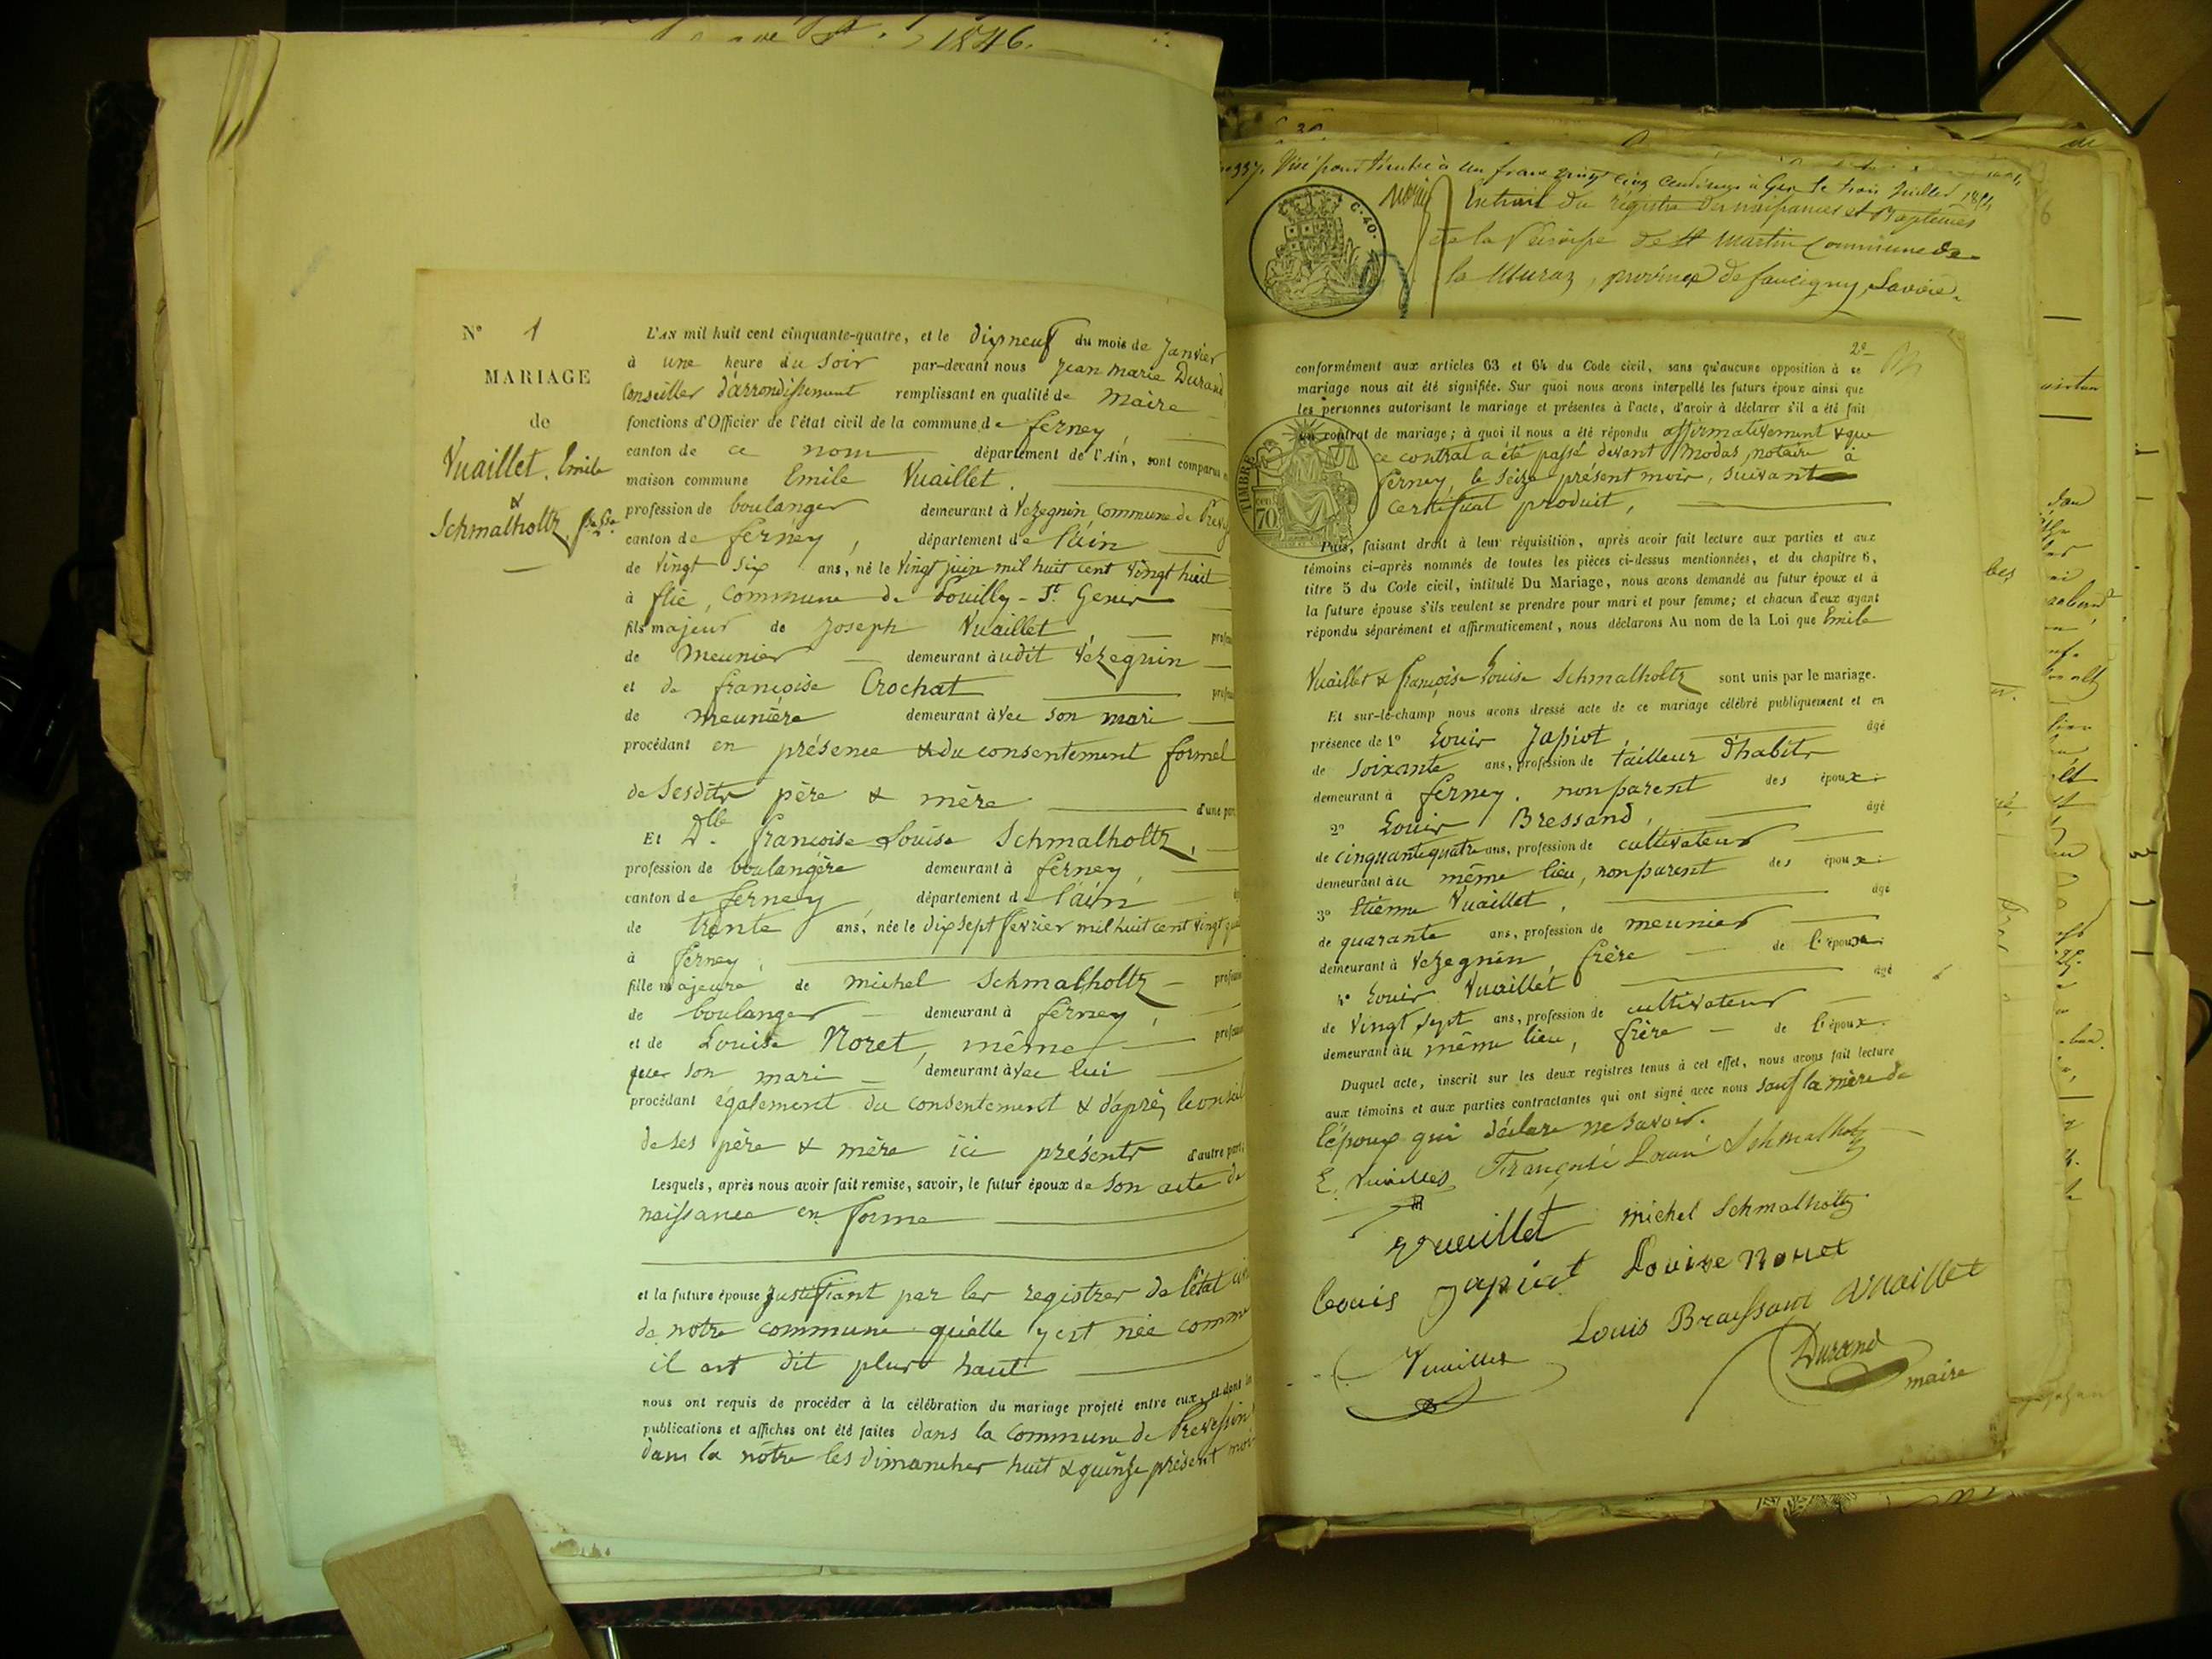 1846.
N° 1
MARIAGE
de
Vuaillet. Emile
&
Schmalholtz
L'AN mil huit cent cinquante-quatre, et le dixneuf du mois de Janvier
à une heure du soir par-devant nous Jean Marie Durand
Conseiller d'arrondissement remplissant en qualité de Maire
fonctions d'Officier de l'état civil de la commune de ferney
canton de ce nom département de l'Ain, sont comparus
maison commune Emile Vuaillet.
profession de boulanger demeurant à Vezegnin Commune de
canton de ferney, département de l'ain
de Vingt six ans, né le Vingt juin mil huit cent Vingt huit
à flie, Commune de Pouilly-St. Genis
fils majeur de Joseph Vuaillet,
de Meunier demeurant audit Vezegnin
et de françoise Crochat
de meunière demeurant avec son mari
procédant en présence & du consentement formel
de sesdits père & mère d'une part
Et Dlle. françoise Louise Schmalholtz,
profession de boulangère demeurant à ferney,
canton de ferney, département de l'ain
de trente ans, née le dix sept fevrier mil huit cent vingt
à ferney,
fille majeure de michel Schmalholtz
de boulanger demeurant à ferney,
et de Louise Noret, même
que son mari demeurant avec lui
procédant également du consentement & d'après le conseil
de ses père & mère ici présents d'autre part.
Lesquels, après nous avoir fait remise, savoir, le futur époux de son acte de
naissance en forme
et la future épouse justifiant par les registres de l'état
de notre commune qu'elle y est née comme
il est dit plus haut
nous ont requis de procéder à la célébration du mariage projeté entre eux, et dont
publications et affiches ont été faites dans la commune de Prevessin
dans la nôtre les dimanches huit & quinze présent mois
Visé pour timbre à un franc vingt cinq centimes à Gex le trois Juillet
C. 40.
Extrait du régistre des naissances et Baptemes
de la Paroisse de St Martin Commune de
la Muraz, province de faucigny, Savoie.
2e
conformément aux articles 63 et 64 du Code civil, sans qu'aucune opposition à ce
mariage nous ait été signifiée. Sur quoi nous avons interpellé les futurs époux ainsi que
les personnes autorisant le mariage et présentes à l'acte, d'avoir à déclarer s'il a été fait
un contrat de mariage; à quoi il nous a été répondu affirmativement & que
ce contrat a été passé devant Modas, notaire à
ferney, le seize présent mois, suivant
certificat produit,
TIMBRE
70
Puis, faisant droit à leur réquisition, après avoir fait lecture aux parties et aux
témoins ci-après nommés de toutes les pièces ci-dessus mentionnées, et du chapitre 6,
titre 5 du Code civil, intitulé Du Mariage, nous avons demandé au futur époux et à
la future épouse s'ils veulent se prendre pour mari et pour femme; et chacun d'eux ayant
répondu séparément et affirmativement, nous déclarons Au nom de la Loi que Emile
Vuaillet & françoise Louise Schmalholtz sont unis par le mariage.
Et sur-le-champ nous avons dressé acte de ce mariage célébré publiquement et en
présence de 1° Louis Japiot, âgé
de soixante ans, profession de tailleur d'habits
demeurant à ferney. non parent des époux
2° Louis Bressand, âgé
de cinquante quatre ans, profession de cultivateur
demeurant au même lieu, non parent des époux
3° Etienne Vuaillet, âgé
de quarante ans, profession de meunier
demeurant à Vezegnin, frère de l'époux
4° Louis Vuaillet âgé
de Vingt sept ans, profession de cultivateur
demeurant au même lieu, frère de l'époux
Duquel acte, inscrit sur les deux registres tenus à cet effet, nous avons fait lecture
aux témoins et aux parties contractantes qui ont signé avec nous sauf la mère de
l'époux qui déclare ne savoir.
E. Vuaillet Françoise Louise Schmalholtz
Vuaillet michel Schmalholtz
louis Japiot Louise Noret
Louis Braissant Vuaillet
Vuaillet Durand
maire